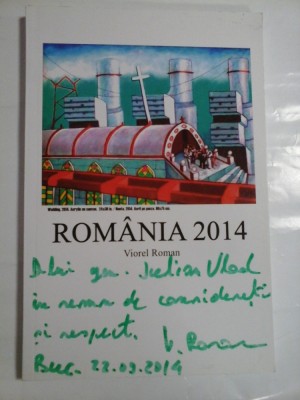 ROMÂNIA 2014
Viorel Roman
D-lui gen. Iulian Vlad
în semn de considerație
și respect. V. Roman
Buc. 22.09.2014